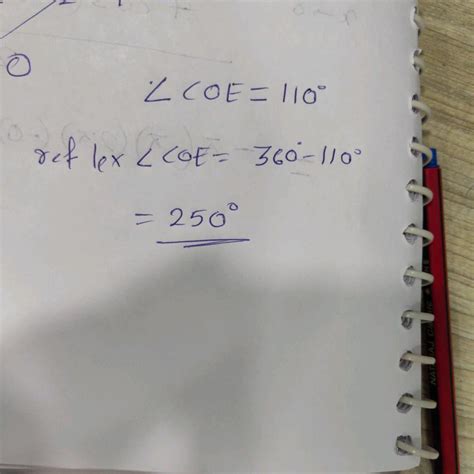 O
∠COE = 110°
reflex ∠COE = 360° - 110°
= 250°